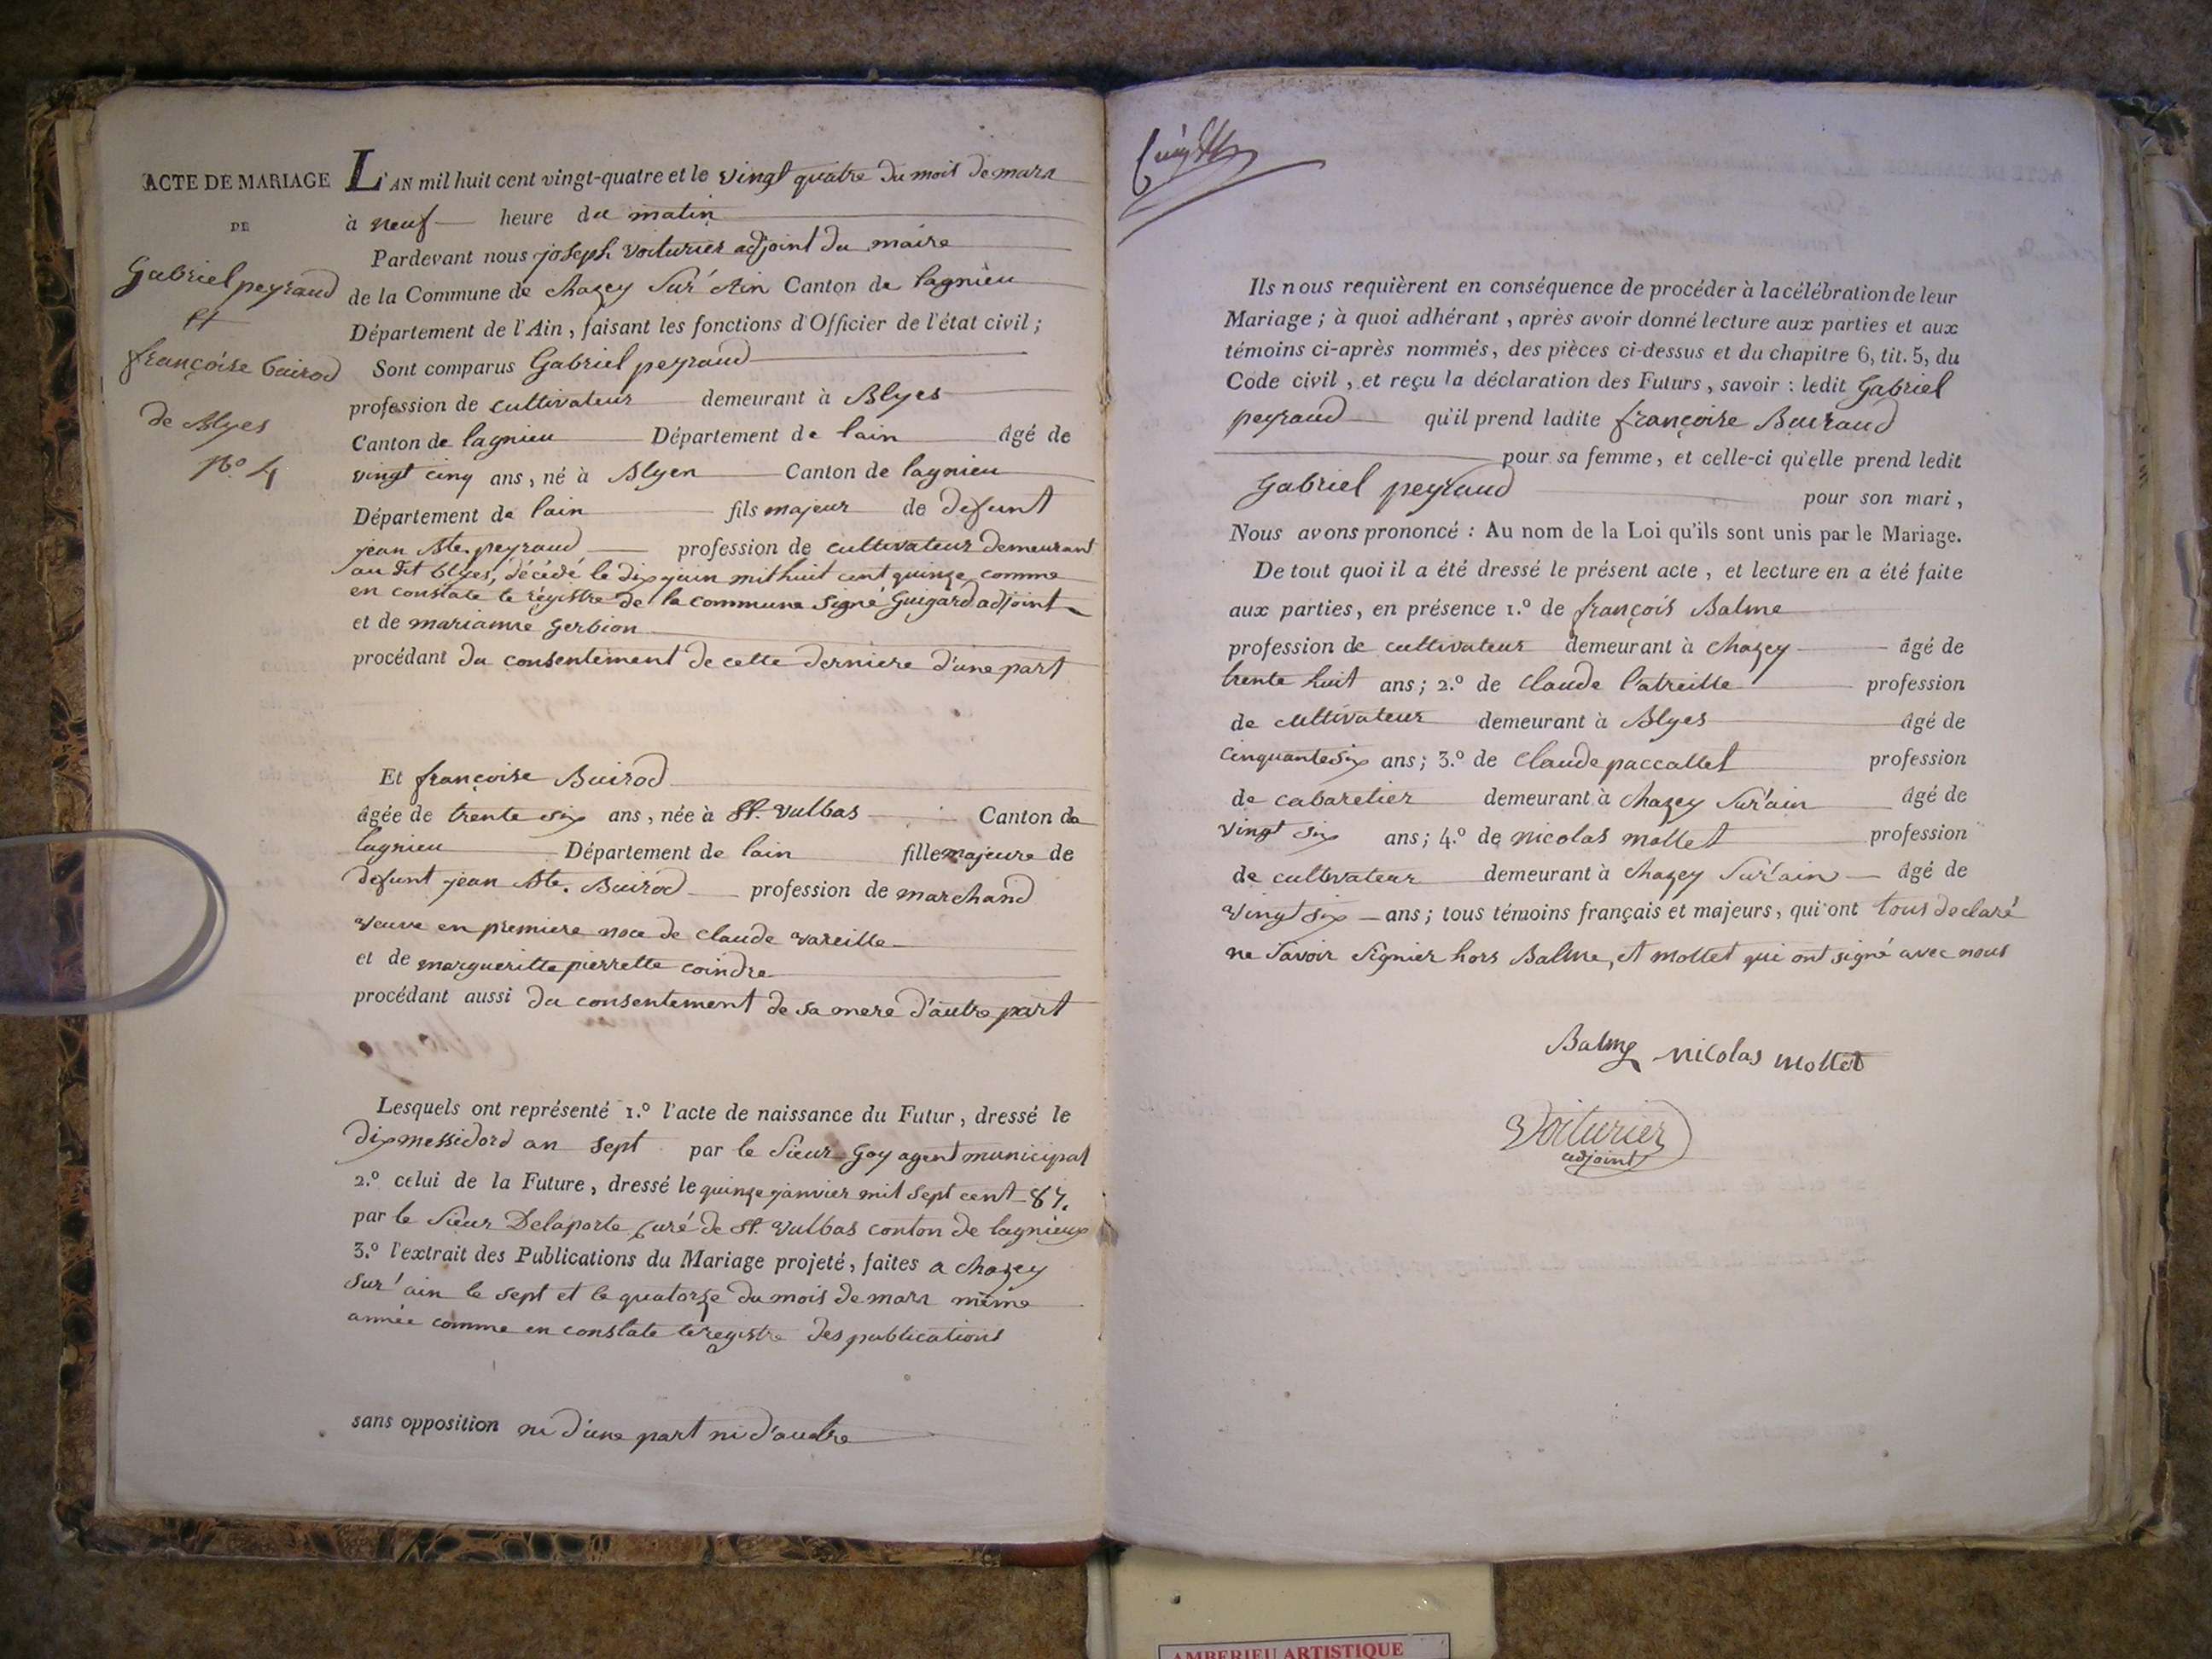 ACTE DE MARIAGE
DE
Gabriel peyraud
et
françoise buirod
de Blyes
N.o 4
L'AN mil huit cent vingt-quatre et le vingt quatre du mois de mars
à neuf heure du matin
Pardevant nous joseph voiturier adjoint du maire
de la Commune de chazey Sur'Ain Canton de lagnieu
Département de l'Ain, faisant les fonctions d'Officier de l'état civil;
Sont comparus Gabriel peyraud
profession de cultivateur demeurant à Blyes
Canton de lagnieu Département de lain âgé de
vingt cinq ans, né à Blyes Canton de lagnieu
Département de lain fils majeur de defunt
jean Bte. peyraud profession de cultivateur demeurant
au dit blyes, décédé le dix juin mil huit cent quinze comme
en constate le régistre de la commune signé Guigard adjoint
et de marianne Gerbion
procédant du consentement de cette derniere d'une part
Et françoise Buirod
âgée de trente six ans, née à St. vulbas Canton de
lagnieu Département de lain fille majeure de
defunt jean Bte. Buirod profession de marchand
veuve en premiere noce de claude vareille
et de margueritte pierrette coindre
procédant aussi du consentement de sa mere d'autre part
Lesquels ont représenté 1.º l'acte de naissance du Futur, dressé le
dix messidord an sept par le Sieur Goy agent municipal
2.º celui de la Future, dressé le quinze janvier mil sept cent 87.
par le Sieur Delaporte curé de St. vulbas conton de lagnieux
3.º l'extrait des Publications du Mariage projeté, faites a chazey
sur'ain le sept et le quatorze du mois de mars même
année comme en constate le registre des publications
sans opposition ni d'une part ni d'autre
Ils nous requièrent en conséquence de procéder à la célébration de leur
Mariage; à quoi adhérant, après avoir donné lecture aux parties et aux
témoins ci-après nommés, des pièces ci-dessus et du chapitre 6, tit. 5, du
Code civil, et reçu la déclaration des Futurs, savoir: ledit Gabriel
peyraud qu'il prend ladite françoise Buiraud
pour sa femme, et celle-ci qu'elle prend ledit
Gabriel peyraud pour son mari,
Nous avons prononcé: Au nom de la Loi qu'ils sont unis par le Mariage.
De tout quoi il a été dressé le présent acte, et lecture en a été faite
aux parties, en présence 1.º de françois Balme
profession de cultivateur demeurant à chazey âgé de
trente huit ans; 2.º de claude l'atreille profession
de cultivateur demeurant à Blyes âgé de
cinquante six ans; 3.º de claude paccallet profession
de cabaretier demeurant à chazey Sur'ain âgé de
vingt six ans; 4.º de nicolas mollet profession
de cultivateur demeurant à chazey Sur'ain âgé de
vingt six ans; tous témoins français et majeurs, qui ont tous declaré
ne savoir signier hors Balme, et mollet qui ont signé avec nous
Balme nicolas mollet
Voiturier
adjoint
AMBERIEU ARTISTIQUE